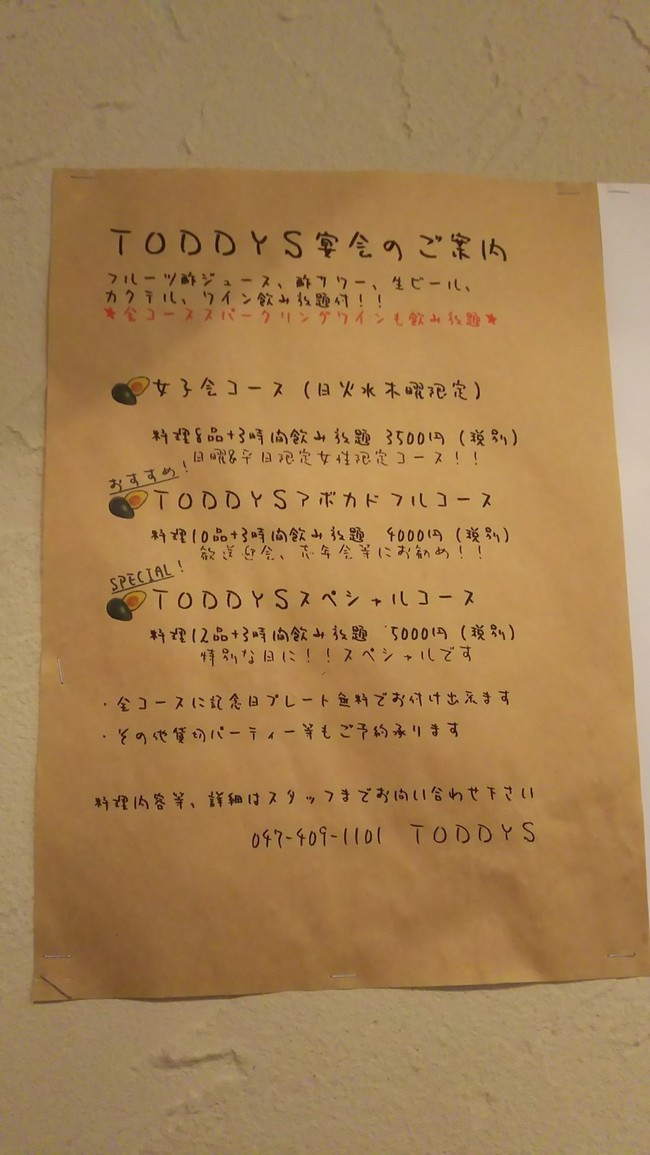 TODDYS宴会のご案内
フルーツ酢ジュース、酢サワー、生ビール、
カクテル、ワイン飲み放題付！！
★全コーススパークリングワインも飲み放題★
女子会コース（日火水木曜限定）
料理8品+3時間飲み放題 3500円（税別）
日曜&平日限定女性限定コース！！
おすすめ！
TODDYSアボカドフルコース
料理10品+3時間飲み放題 4000円（税別）
歓送迎会、忘年会等にお勧め！！
SPECIAL！
TODDYSスペシャルコース
料理12品+3時間飲み放題 5000円（税別）
特別な日に！！スペシャルです
・全コースに記念日プレート無料でお付け出来ます
・その他貸切パーティー等もご予約承ります
料理内容等、詳細はスタッフまでお問い合わせ下さい
047-409-1101 TODDYS